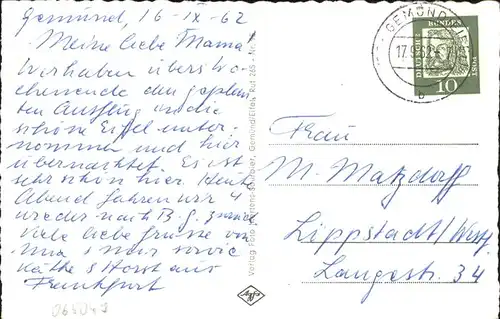 Gemünd, 16-IX-62
Meine liebe Mama!
Wir haben übers Wo-
chenende den geplan-
ten Ausflug in die
schöne Eifel unter-
nommen und hier
übernachtet. Es ist
sehr schön hier. Heute
Abend fahren wir
wieder nach B. g. zurück
Viele liebe Grüsse von
uns
Käthe & Horst aus
Frankfurt
GEMÜND (EIFEL)
17.9.62
b
DEUTSCHE BUNDESPOST
10
Frau
M. Matzdorff
Lippstadt/Westf.
Langestr. 34
Agfa